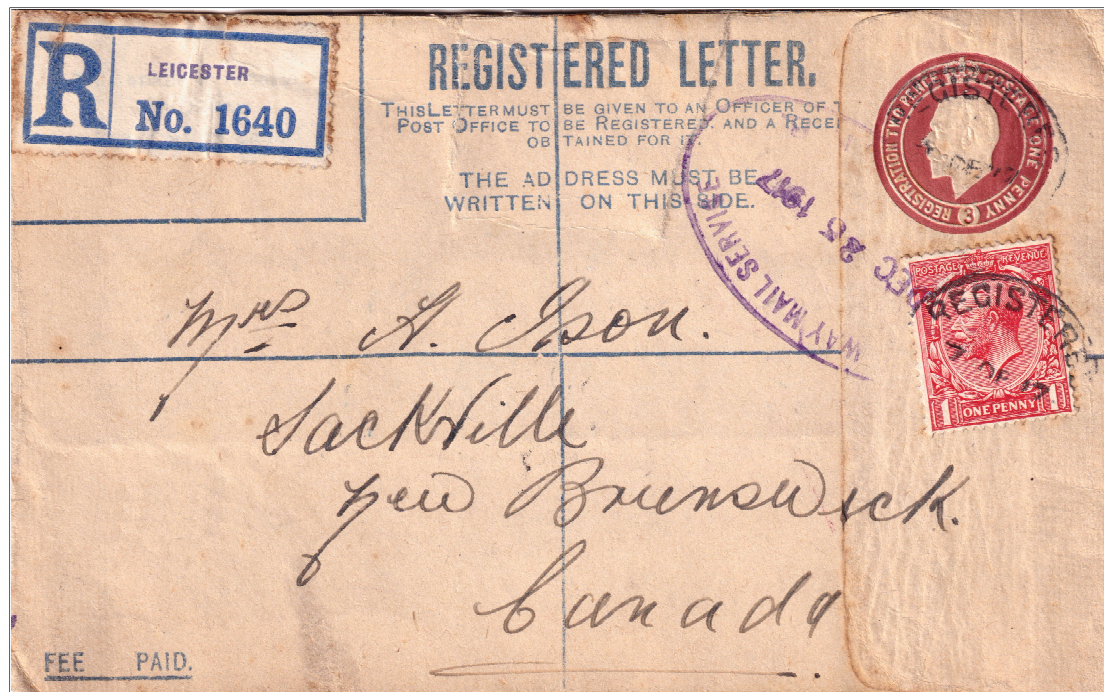 R LEICESTER
No. 1640
REGISTERED LETTER.
THIS LETTER MUST BE GIVEN TO AN OFFICER OF
POST OFFICE TO BE REGISTERED, AND A RECE
OBTAINED FOR IT.
THE ADDRESS MUST BE
WRITTEN ON THIS SIDE.
REGISTRATION TWO PENCE POSTAGE ONE PENNY
3
WAY MAIL SERVICE
DEC 25 1917
POSTAGE REVENUE
1 ONE PENNY 1
REGISTERED
7 DE 17
Mrs A. Ison.
Sackville
New Brunswick.
Canada.
FEE PAID.